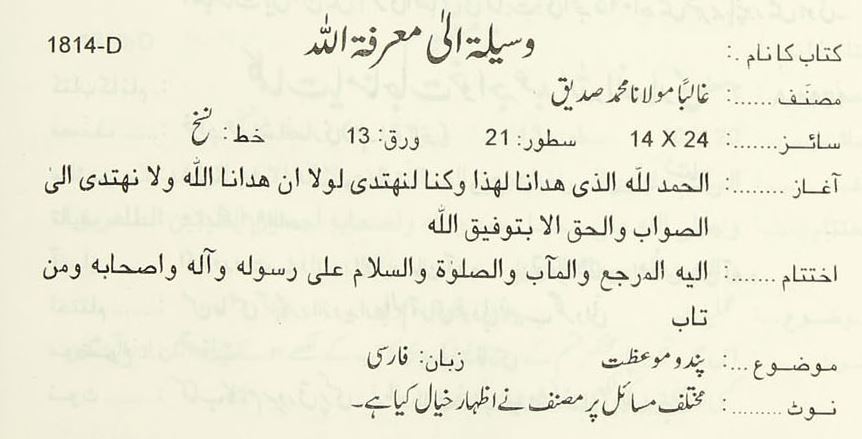 کتاب کا نام .: وسیلة الیٰ معرفة اللہ 1814-D
مصنف......: غالبًا مولانا محمد صدیق
سائـــز.....: 14 X 24 سطور: 21 ورق: 13 خط: نسخ
آغاز ........: الحمد للّٰه الذی هدانا لهذا وکنا لنهتدی لولا ان هدانا اللّٰه ولا نهتدی الیٰ
الصواب والحق الا بتوفیق اللّٰه
اختتام .......: الیه المرجع والمآب والصلوٰة والسلام علی رسوله وآله واصحابه ومن
تاب
موضــوع ...: پند و موعظت زبان: فارسی
نــوٹ .........: مختلف مسائل پر مصنف نے اظہار خیال کیا ہے۔